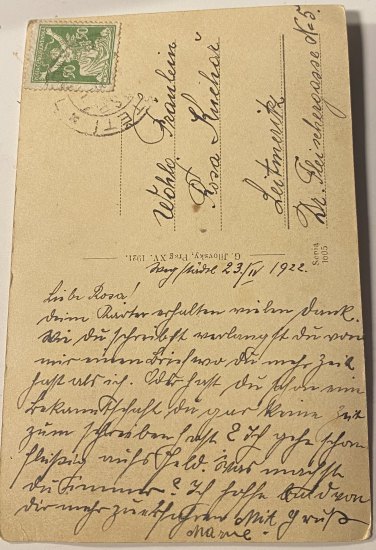 50 50
Wohlg. Fräulein
Rosa Kuchař
Leitmeritz
Dr. Fleischergasse N. 5.
G. Jilovsky, Prag XV. 1921.
Sepia
1605
Wegstädtl 23./IV 1922.
Liebe Rosa!
Deine Karte erhalten vielen Dank.
Wie du schreibst verlangst du von
mir einen Brief wo du mehr Zeit
hast als ich. Oder hast du schon eine
Bekanntschaft du gar keine Zeit
zum schreiben hast? Ich gehe schon
fleißig aufs Feld. Was machst
du immer? Ich hoffe bald von
dir mehr zu erfahren. Mit Gruß
Marie.